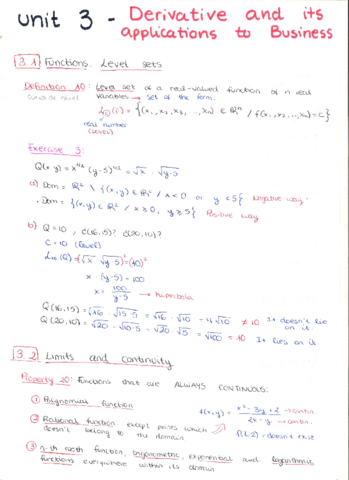 Unit 3 - Derivative and its
applications to Business
3.1 Functions. Level sets
Definition 10: Level set of a real-valued function of n real
variables → set of the form.
(C) = {(x₁, x₂, x₃, ..., xₙ) ∈ ℝⁿ / f(x₁, x₂, ..., xₙ) = C}
real number
(LEVEL)
Exercise 3:
Q(x,y) = x^1/2 (y-5)^1/2 = √x · √y-5
a) Dom = ℝ² \ {(x,y) ∈ ℝ² / x < 0 or y < 5} Negative way
Dom = {(x,y) ∈ ℝ² / x ≥ 0, y ≥ 5} Positive way
b) Q = 10, ¿(16,15)? ¿(20,10)?
C = 10 (level)
L₁₀(Q) = (√x √y-5)² = (10)²
x · (y-5) = 100
x = 100/y-5 → hyperbola
Q(16,15) = √16 · √15-5 = √16 · √10 = 4√10 ≠ 10 It doesn't lie
on it.
Q(20,10) = √20 · √10-5 = √20 · √5 = √100 = 10 It lies on it
3.2 Limits and continuity
Property 20: Functions that are ALWAYS CONTINUOUS:
① Polynomial function
② Rational function except points which
doesn't belong to the domain
f(x,y) = x² - 3y + 2 → contin.
2x - y → contin.
f(1,2) = doesn't exist
③ n-th root function, trigonometric, exponential and logarithmic
functions everywhere within its domain